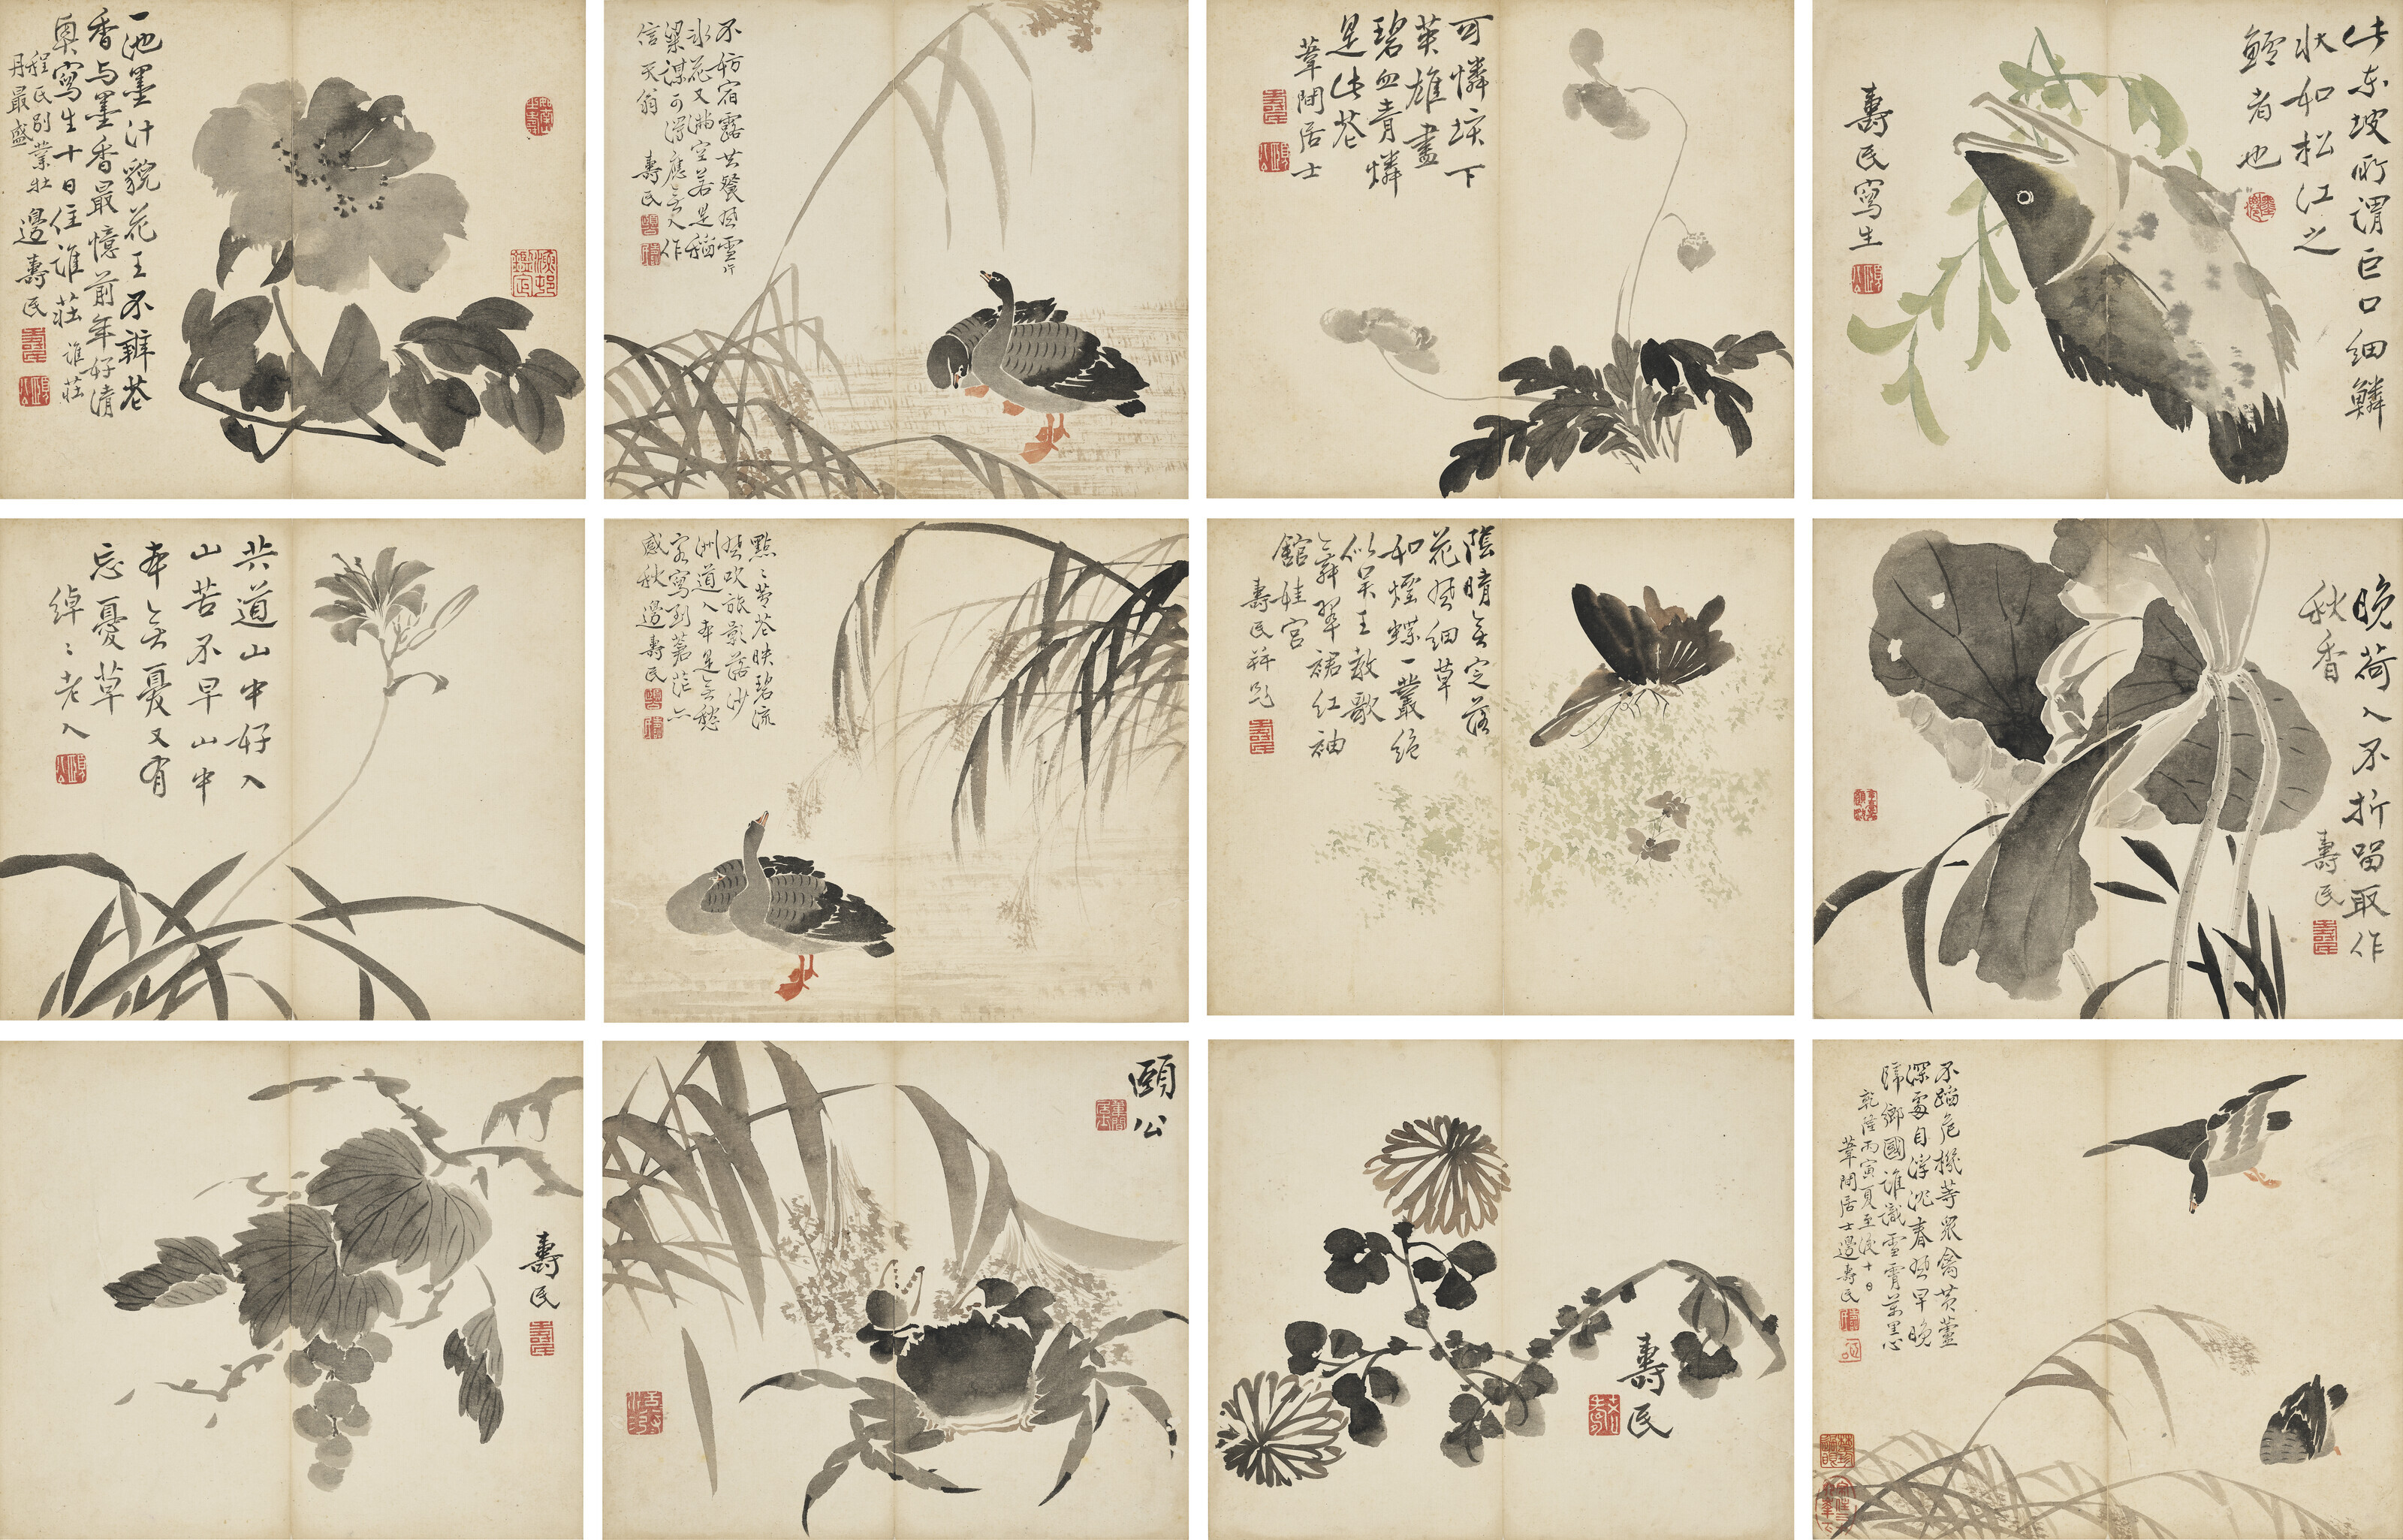 一池墨汁貌花王不辨花
香与墨香最憶前年好清
興寫生十日住誰莊 誰莊
程氏別業牡
丹最盛 邊壽民
不妨宿露共餐風雪片
氷花又滿空若是稻
粱謀可得應無人作
信天翁 壽民
可憐垓下
英雄盡
碧血青燐
是此花
葦間居士
此東坡所謂巨口細鱗
狀如松江之
鱸者也
壽民寫生
共道山中好入
山苦不早山中
本無憂又有
忘憂草
綽〻老人
點〻黃花映碧流
風吹旅影落沙
洲道人本是無愁
客寫到蒼茫亦
感秋 邊壽民
陰晴無定落
花風細草
和煙蝶一叢絕
似吳王教歌
舞翠裙紅袖
館娃宮
壽民并題
晚荷人不折留取作
秋香
壽民
壽民
頤公
壽民
不蹈危機等眾禽黃蘆
深處自浮沈春風早晚
歸鄉國誰識雪霄萬里心
乾隆丙寅夏至後十日
葦間居士邊壽民